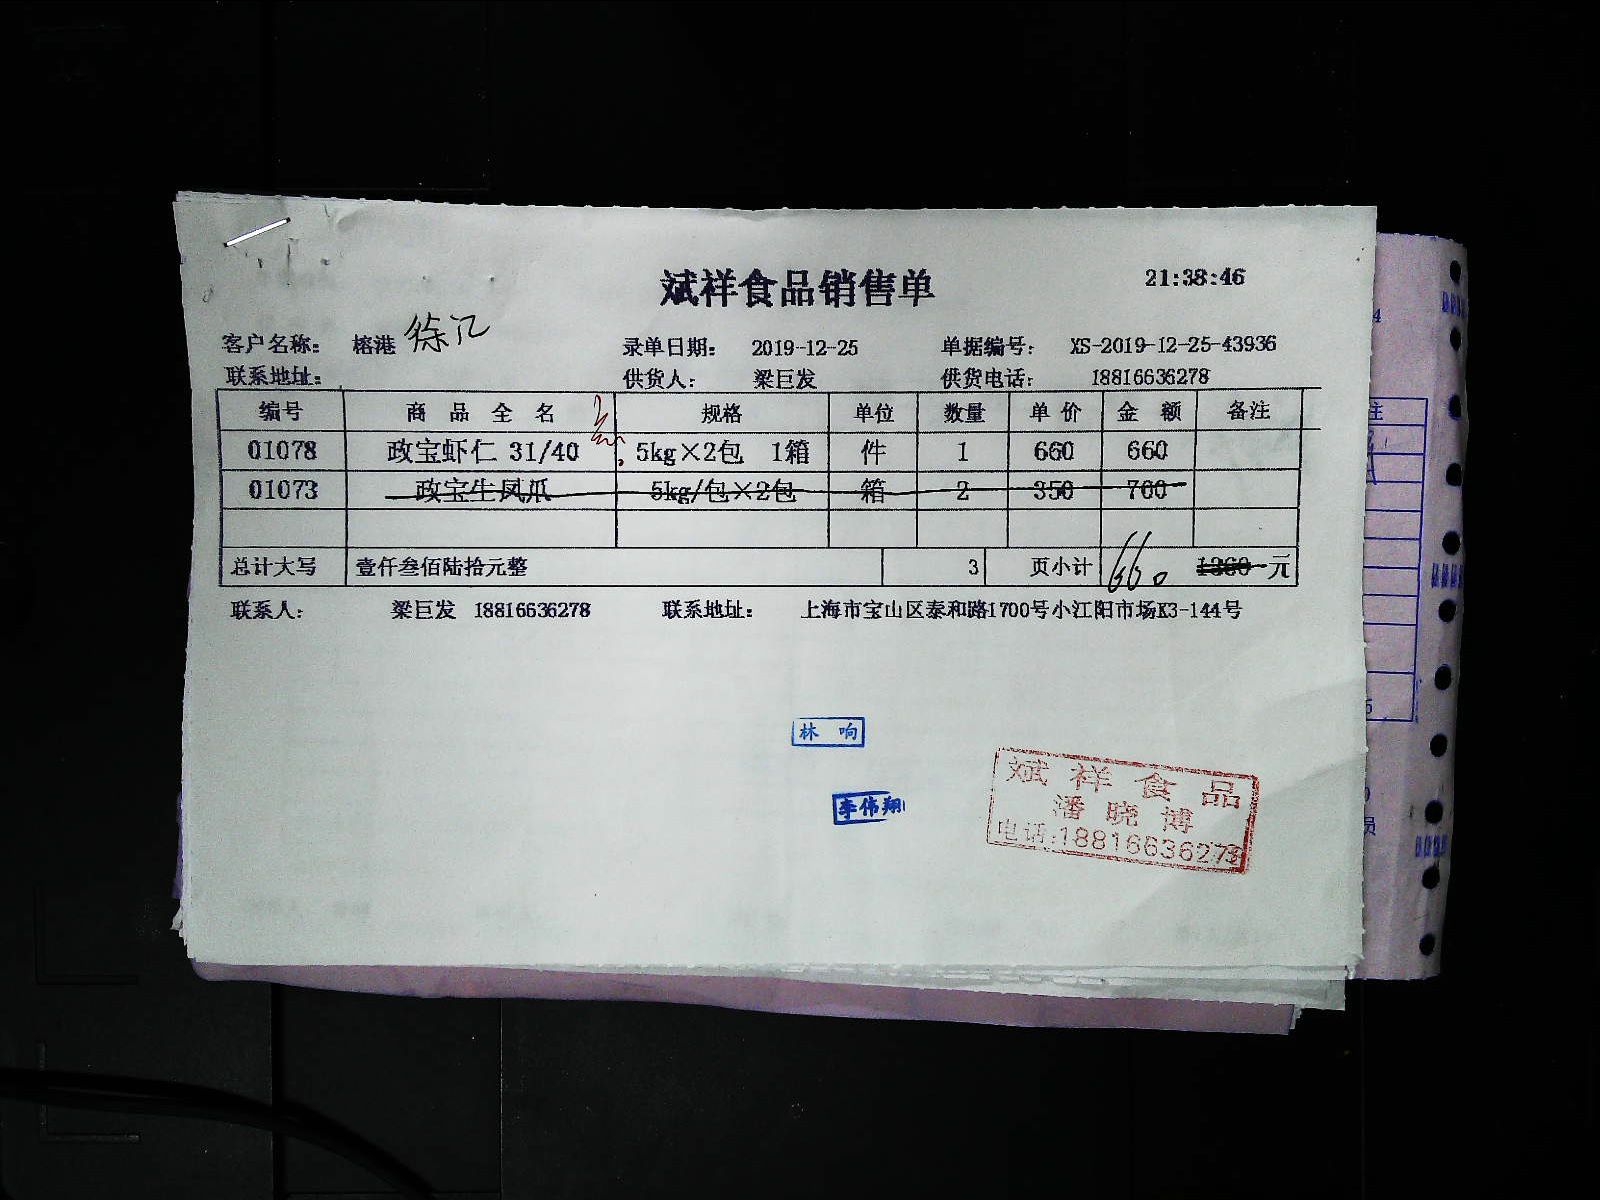 斌祥食品销售单 21:38:46
客户名称: 榕港 徐汇 录单日期: 2019-12-25 单据编号: XS-2019-12-25-43936
联系地址: 供货人: 梁巨发 供货电话: 18816636278
编号 商品全名 规格 单位 数量 单价 金额 备注
01078 政宝虾仁 31/40 5kg×2包 1箱 件 1 660 660
01073 政宝生凤爪 5kg/包×2包 箱 2 350 700
总计大写 壹仟叁佰陆拾元整 3 页小计 660 1360 元
联系人: 梁巨发 18816636278 联系地址: 上海市宝山区泰和路1700号小江阳市场K3-144号
林响
李伟翔
斌祥食品
潘晓博
电话:18816636278